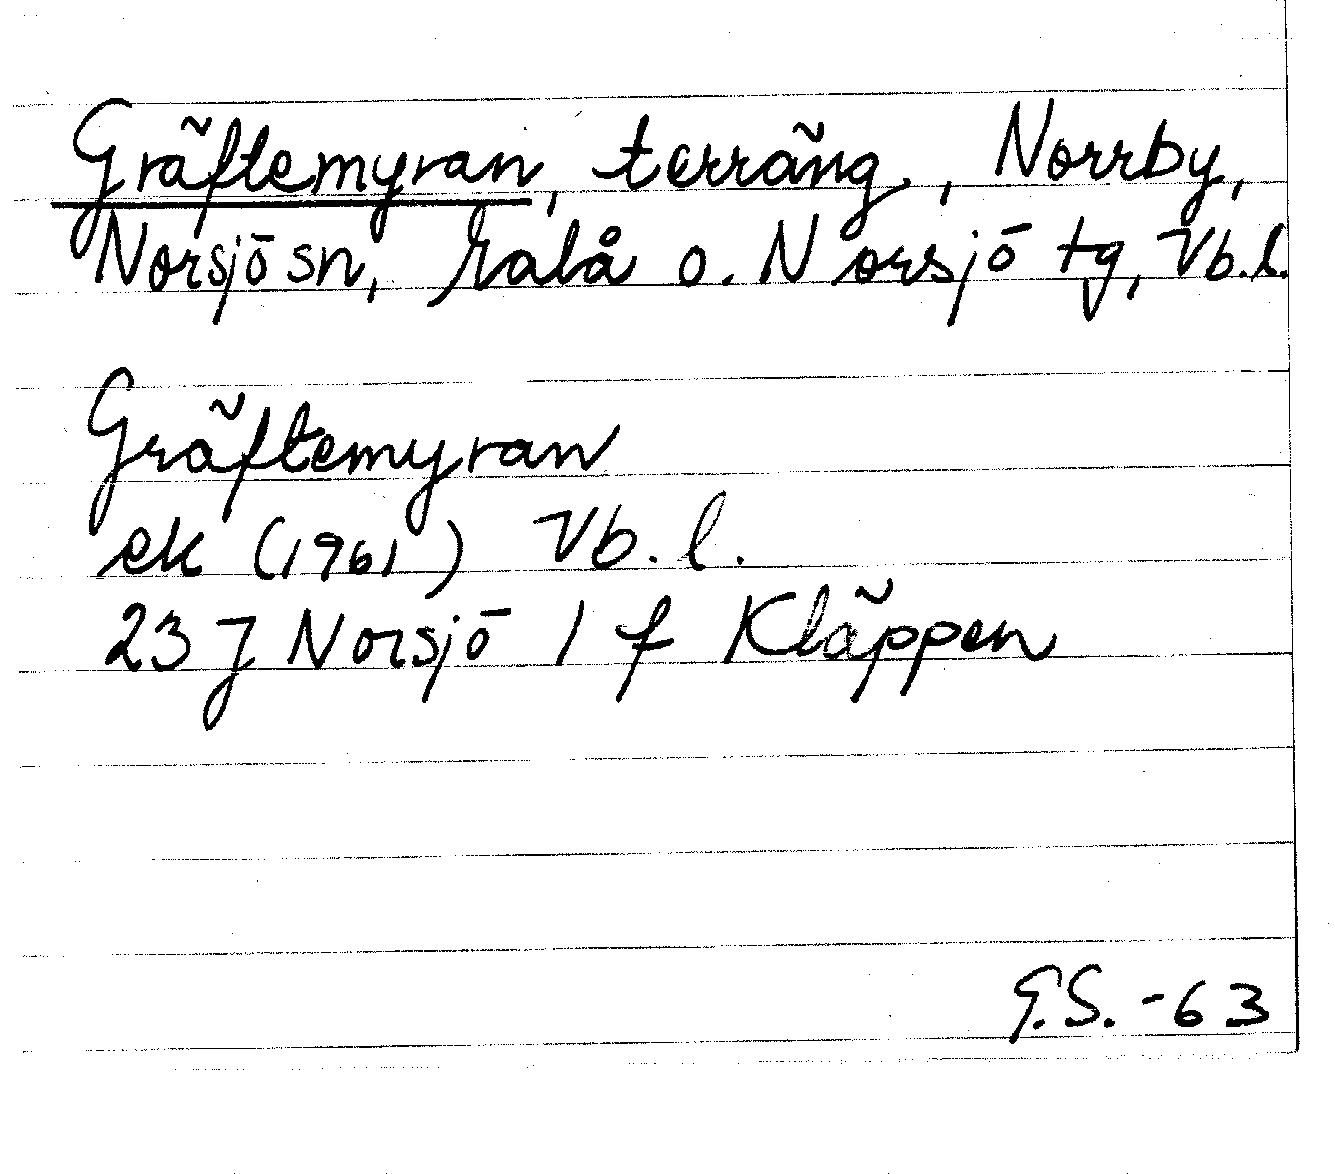 Gräftemyran, terräng, Norrby,
Norsjö sn, Malå o. Norsjö tg, Vb.l.
Gräftemyran
ek (1961) Vb.l.
23 J Norsjö 1 f Kläppen
G.S. -63